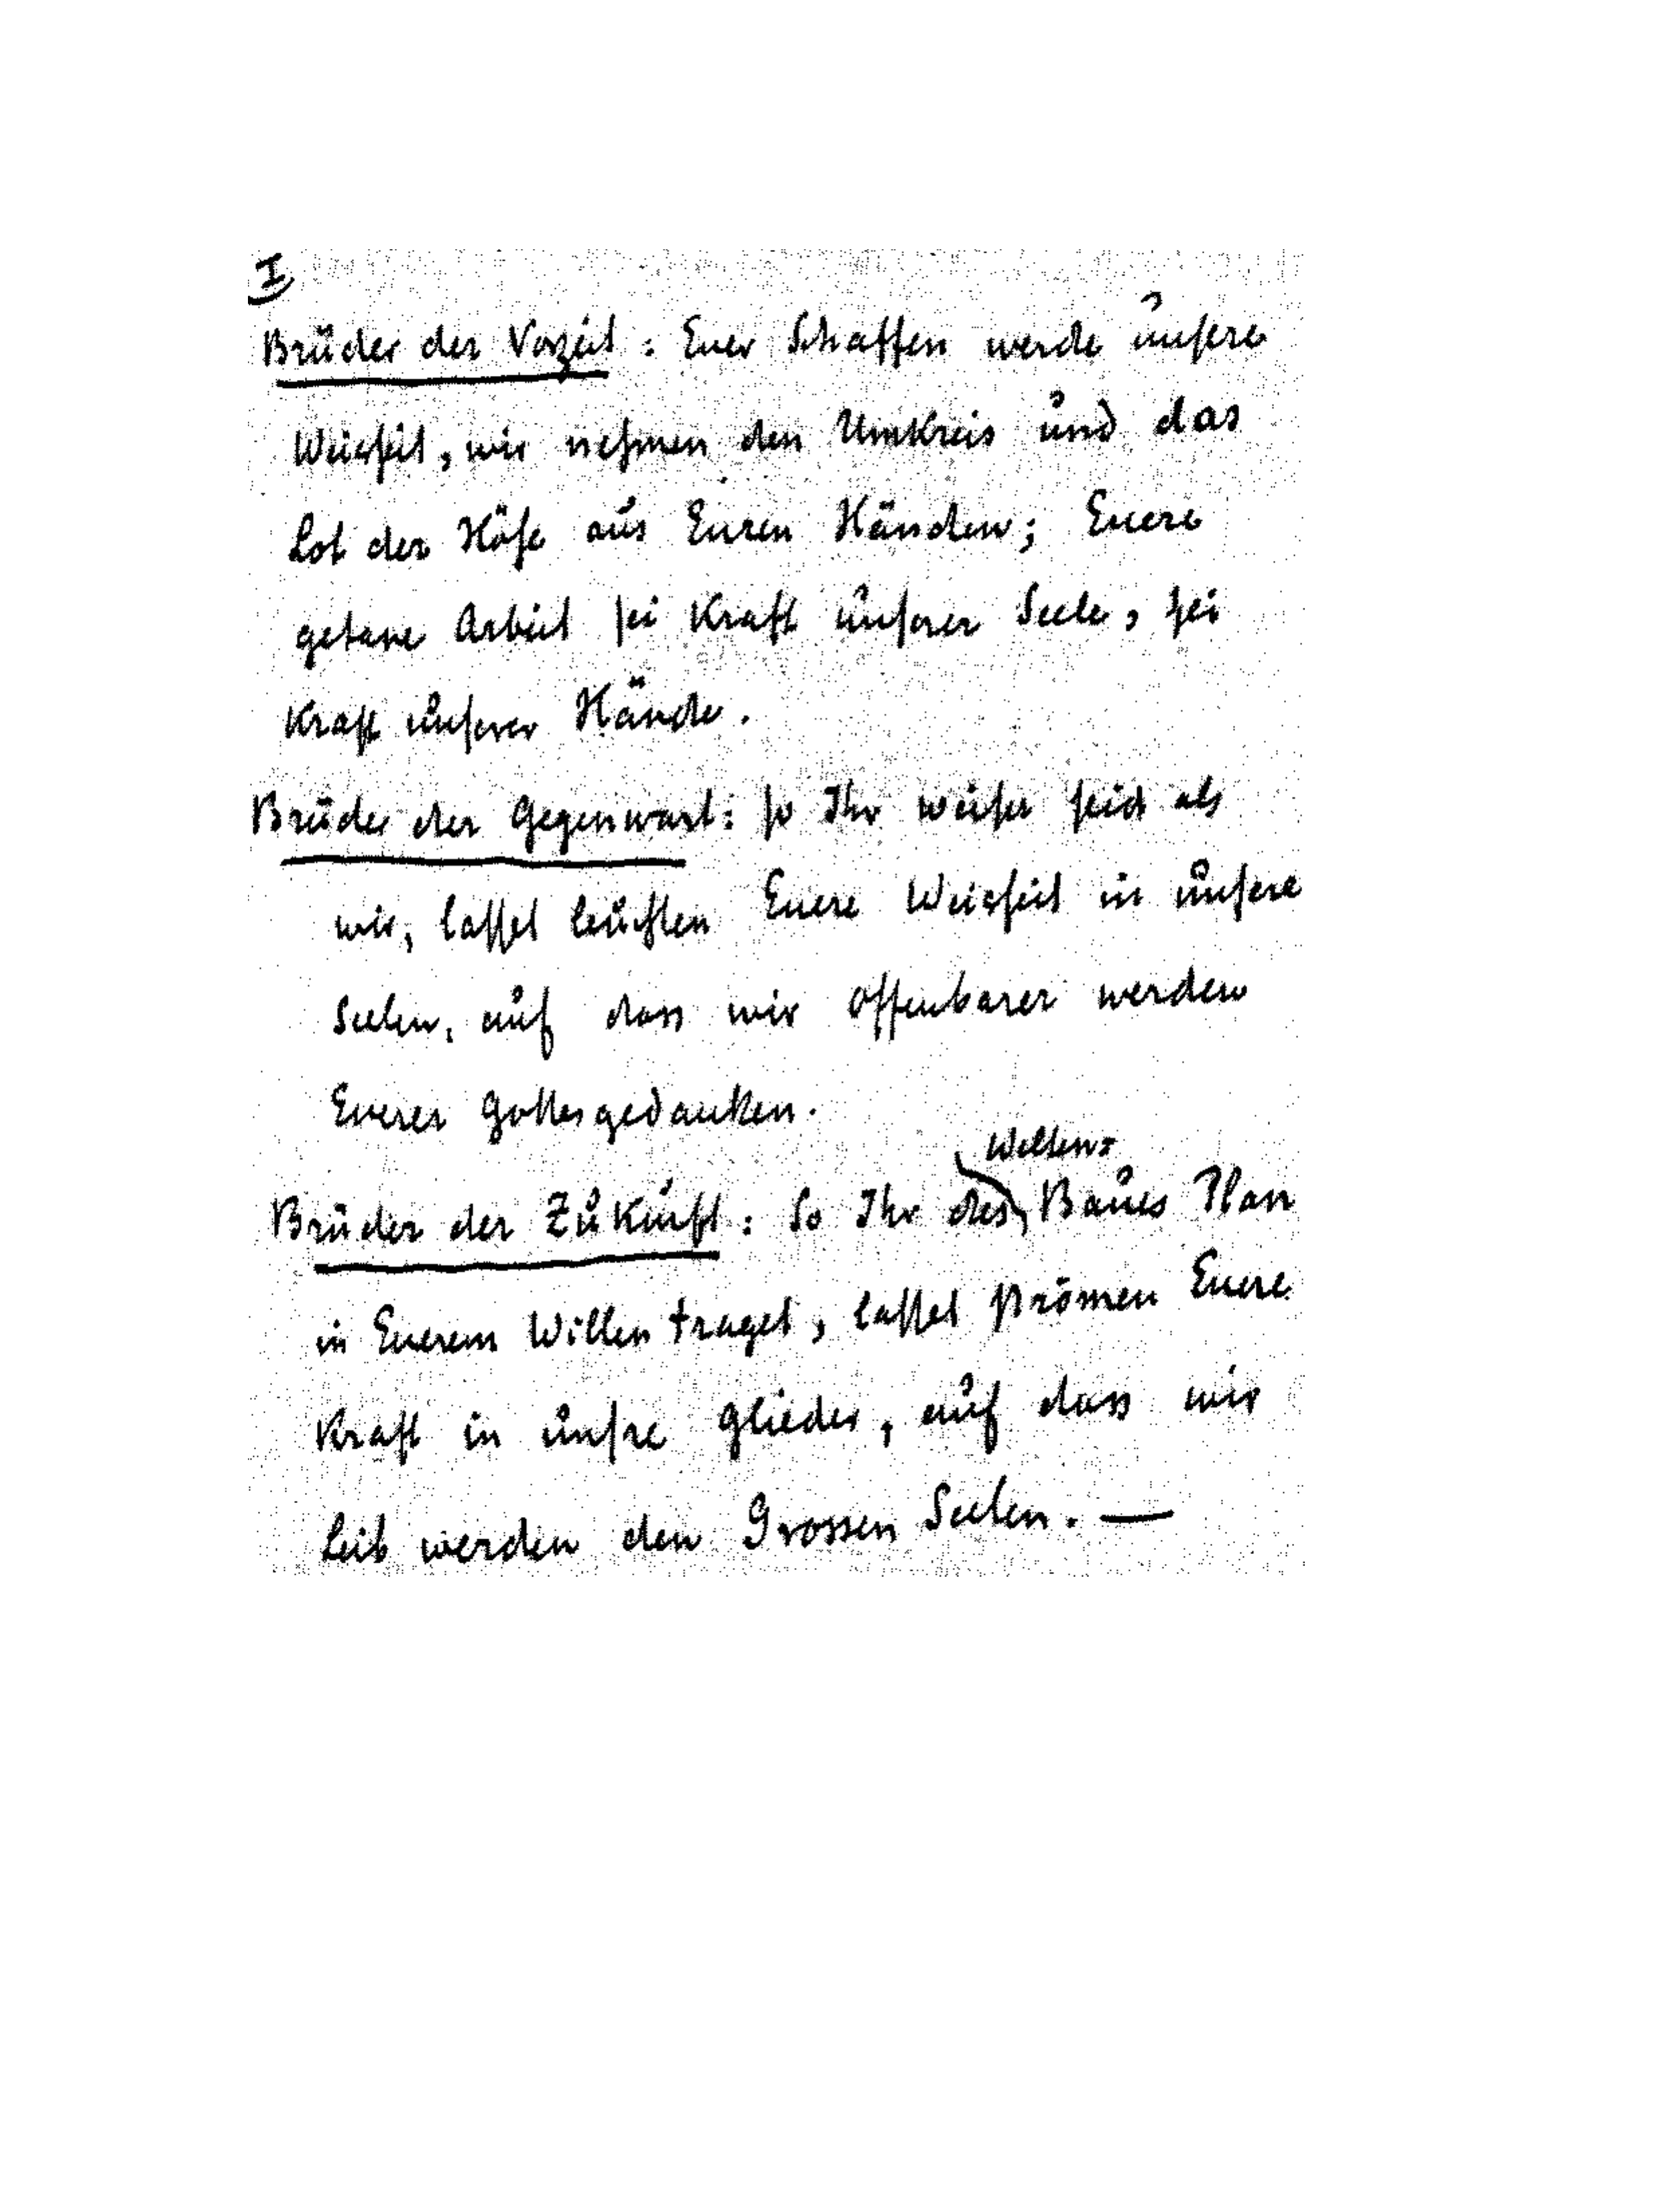 I
Brüder der Vorzeit : Euer Schaffen werde unsere
Weisheit, wir nehmen den Umkreis und das
Lot der Höhe aus Euren Händen; Euere
getane Arbeit sei Kraft unserer Seele, sei
Kraft unserer Hände.
Brüder der Gegenwart : so Ihr weiser seid als
wir, lasset leuchten Euere Weisheit in unsere
Seelen, auf dass wir Offenbarer werden
Euerer Gottesgedanken.
Welten=
Brüder der Zukunft : So Ihr des Baues Plan
in Euerem Willen traget, lasset strömen Euere
Kraft in unsre Glieder, auf dass wir
Leib werden den Grossen Seelen. —